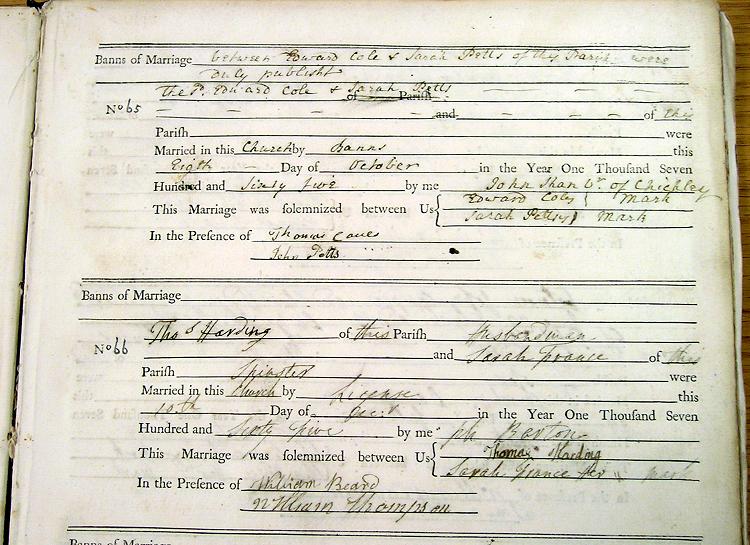 Banns of Marriage between Edward Cole & Sarah Petts of this Parish were
duly publisht
The Pt. Edward Cole & Sarah Petts
of Parish
No 65 and of this
Parish were
Married in this Church by Banns this
Eigth Day of October in the Year One Thousand Seven
Hundred and Sixty five by me John Shan Vr. of Chickley
This Marriage was solemnized between Us { Edward Coles } Mark
Sarah Pettsys } Mark
In the Presence of Thomas
John Petts
Banns of Marriage
Thos Harding of this Parish Husbandman
No 66 and Sarah France of this
Parish Spinster were
Married in this Church by License this
10th Day of in the Year One Thousand Seven
Hundred and Sixty five by me Barton
This Marriage was solemnized between Us { Thomas Harding
Sarah France her mark
In the Presence of William Beard
William Thompson
Banns of Marriage